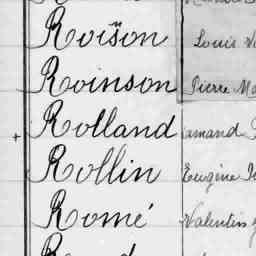 Roïson Louis
Roinson Pierre
+ Rolland amand
Rollin Eugène
Romé Valentin